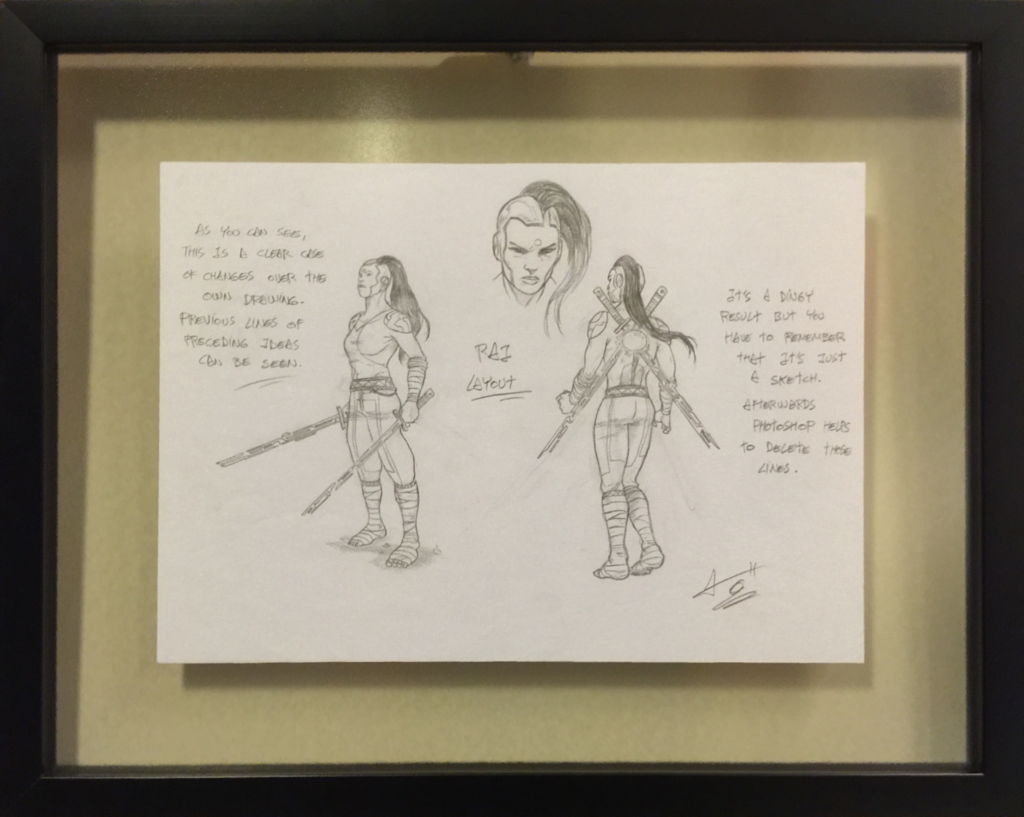 AS YOU CAN SEE,
THIS IS A CLEAR CASE
OF CHANGES OVER THE
OWN DRAWING.
PREVIOUS LINES OF
PRECEDING IDEAS
CAN BE SEEN.
RAI
LAYOUT
IT'S A DINGY
RESULT BUT YOU
HAVE TO REMEMBER
THAT IT'S JUST
A SKETCH.
AFTERWARDS
PHOTOSHOP HELPS
TO DELETE THESE
LINES.